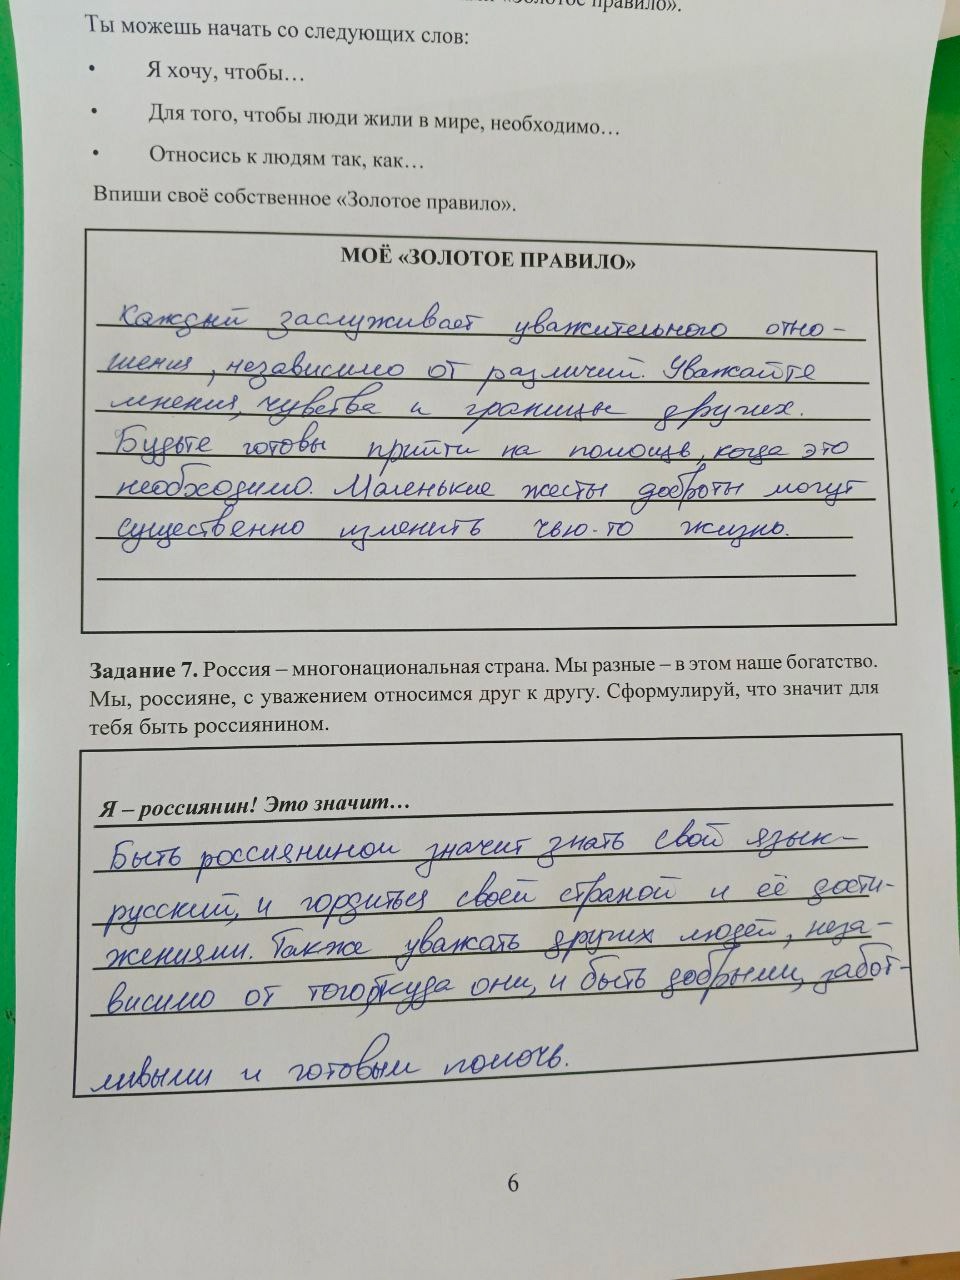 «Золотое правило».
Ты можешь начать со следующих слов:
• Я хочу, чтобы…
• Для того, чтобы люди жили в мире, необходимо…
• Относись к людям так, как…
Впиши своё собственное «Золотое правило».
МОЁ «ЗОЛОТОЕ ПРАВИЛО»
Каждый заслуживает уважительного отно-
шения, независимо от различий. Уважайте
мнения, чувства и границы других.
Будьте готовы прийти на помощь, когда это
необходимо. Маленькие жесты доброты могут
существенно изменить чью-то жизнь.
Задание 7. Россия – многонациональная страна. Мы разные – в этом наше богатство.
Мы, россияне, с уважением относимся друг к другу. Сформулируй, что значит для
тебя быть россиянином.
Я – россиянин! Это значит…
Быть россиянином значит знать свой язык-
русский, и гордиться своей страной и её дости-
жениями. Также уважать других людей, неза-
висимо от того, откуда они, и быть добрыми, забот-
ливыми и готовым помочь.
6